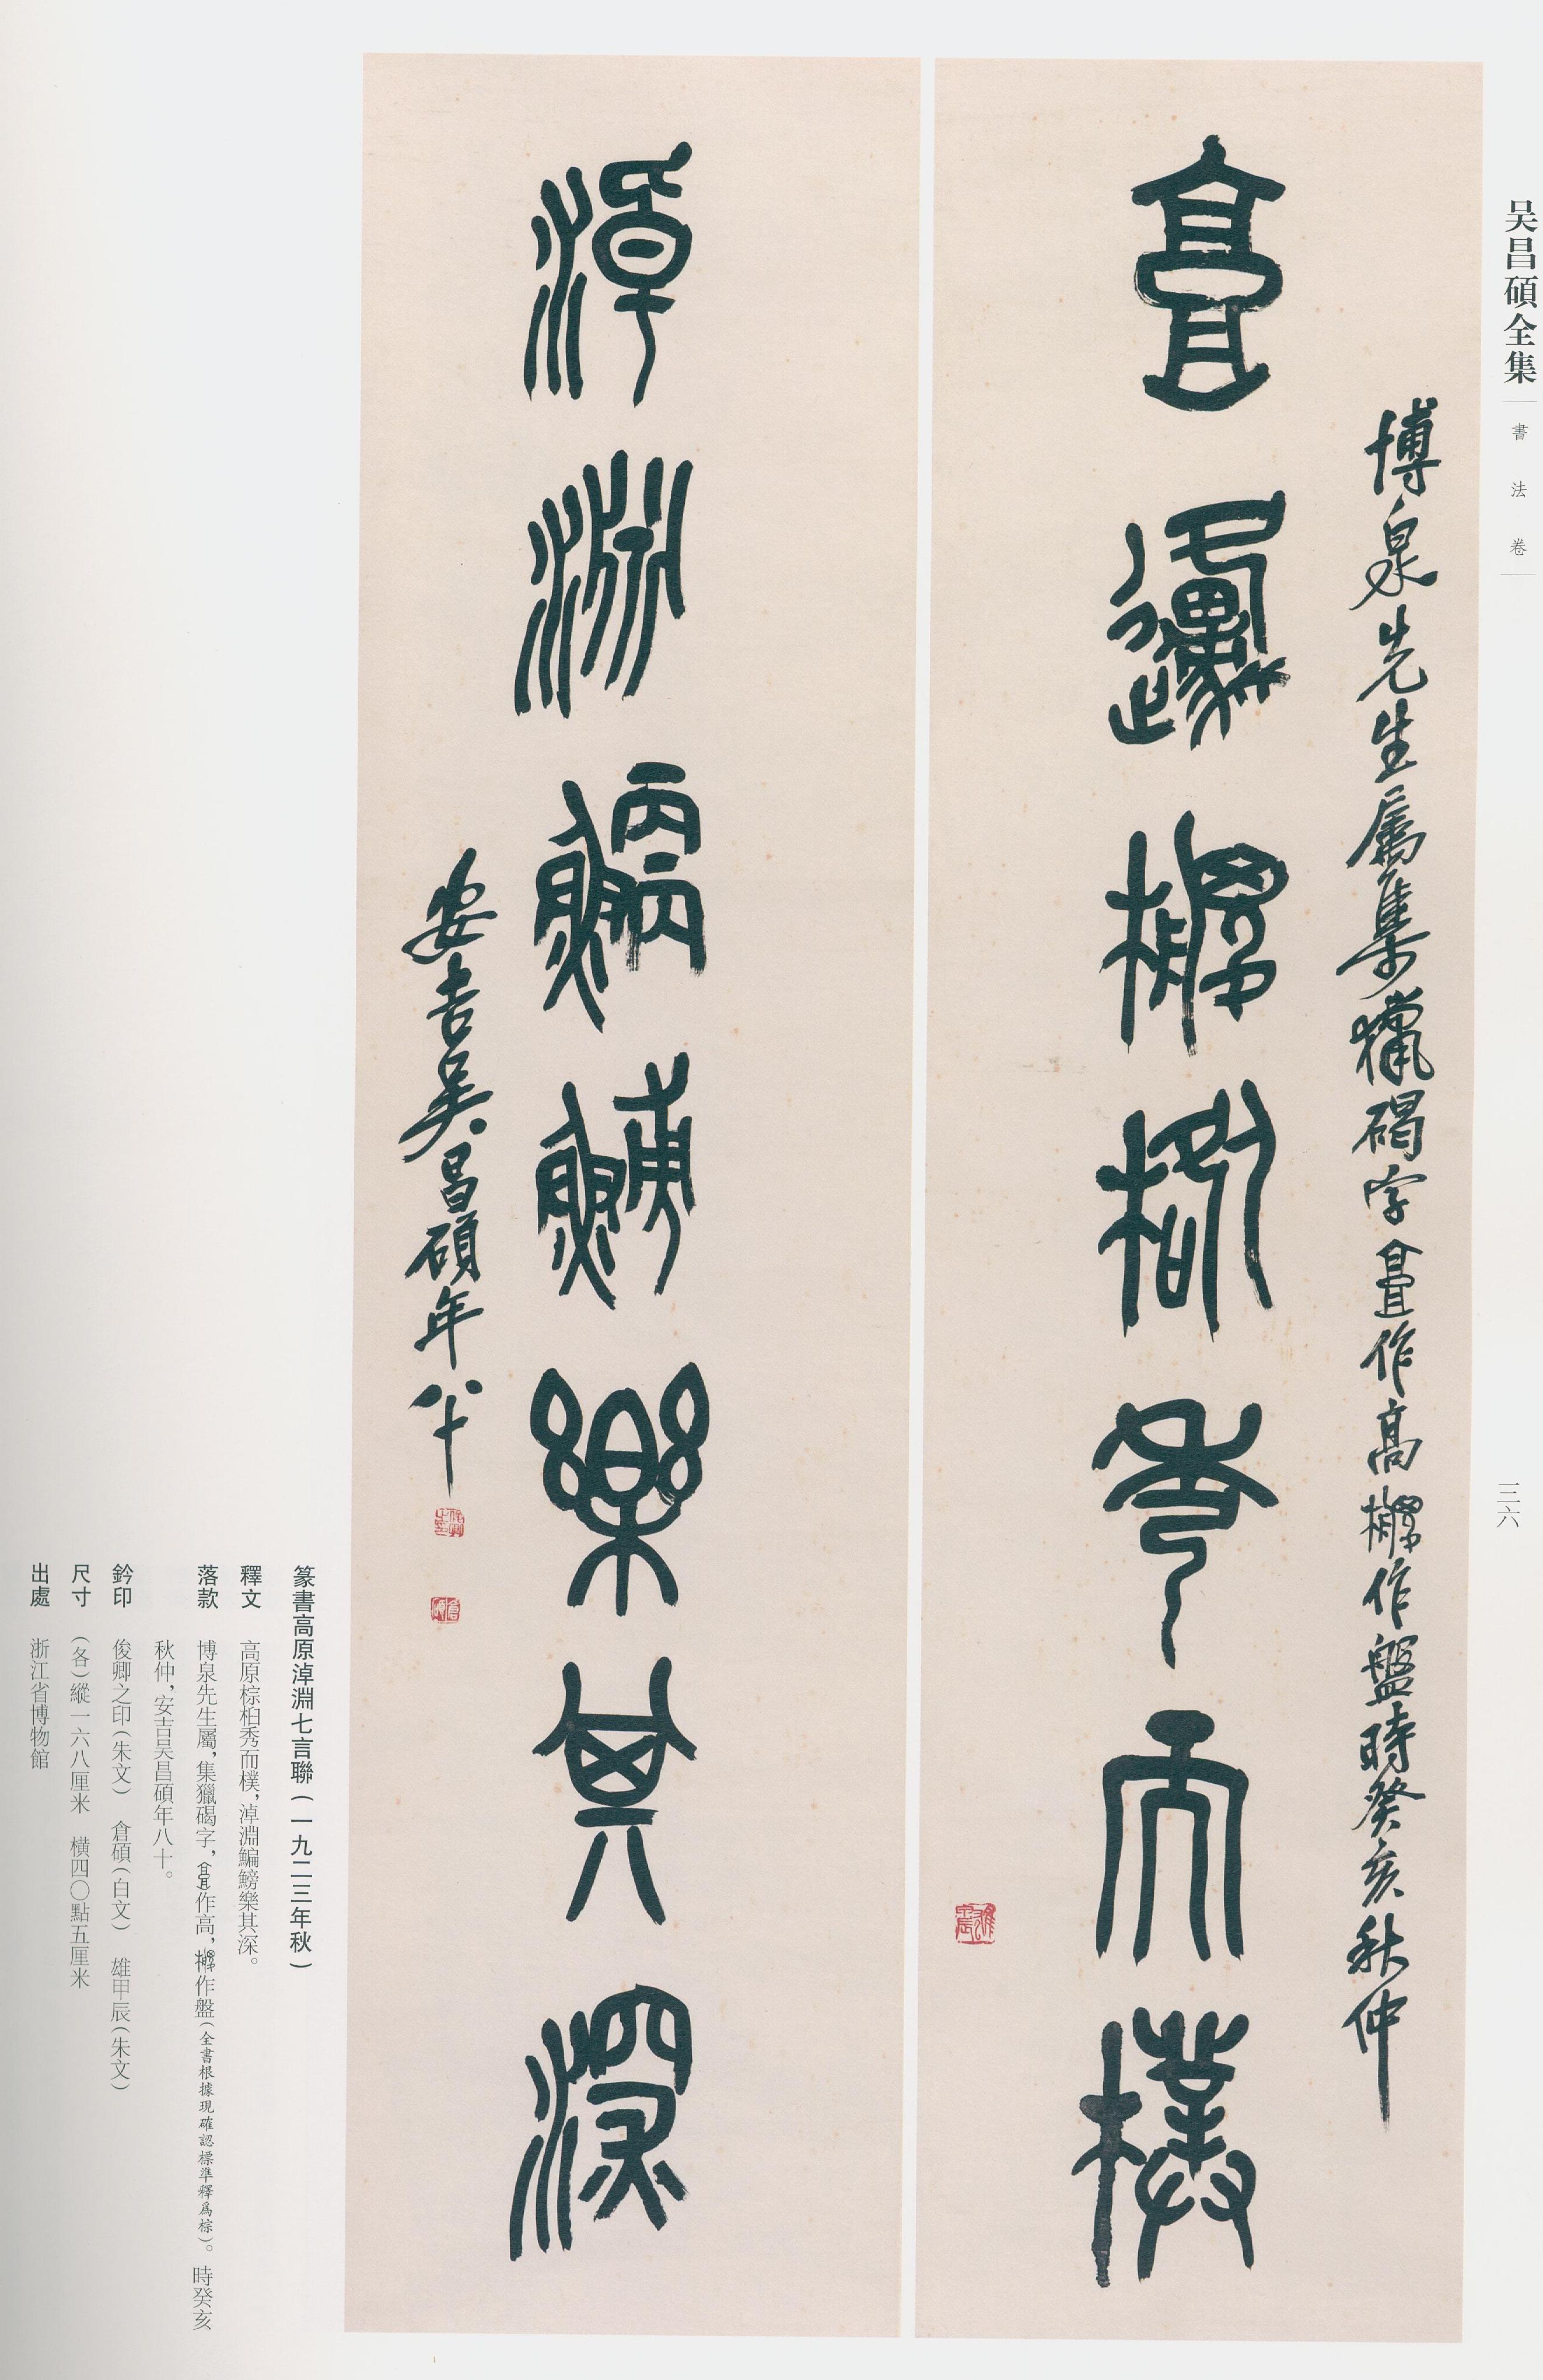 吴昌碩全集
書法卷
三六
博泉先生屬集獵碣字𩫖作高㰏作盤時癸亥秋仲
高原棕桕秀而樸
淖淵鯿鰟樂其深
安吉吴昌碩年八十
篆書高原淖淵七言聯(一九二三年秋)
釋文 高原棕桕秀而樸,淖淵鯿鰟樂其深。
落款 博泉先生屬,集獵碣字,作高,作盤(全書根據現確認標準釋爲棕)。時癸亥
秋仲,安吉吴昌碩年八十。
鈐印 俊卿之印(朱文) 倉碩(白文) 雄甲辰(朱文)
尺寸 (各)縱一六八厘米 横四〇點五厘米
出處 浙江省博物館